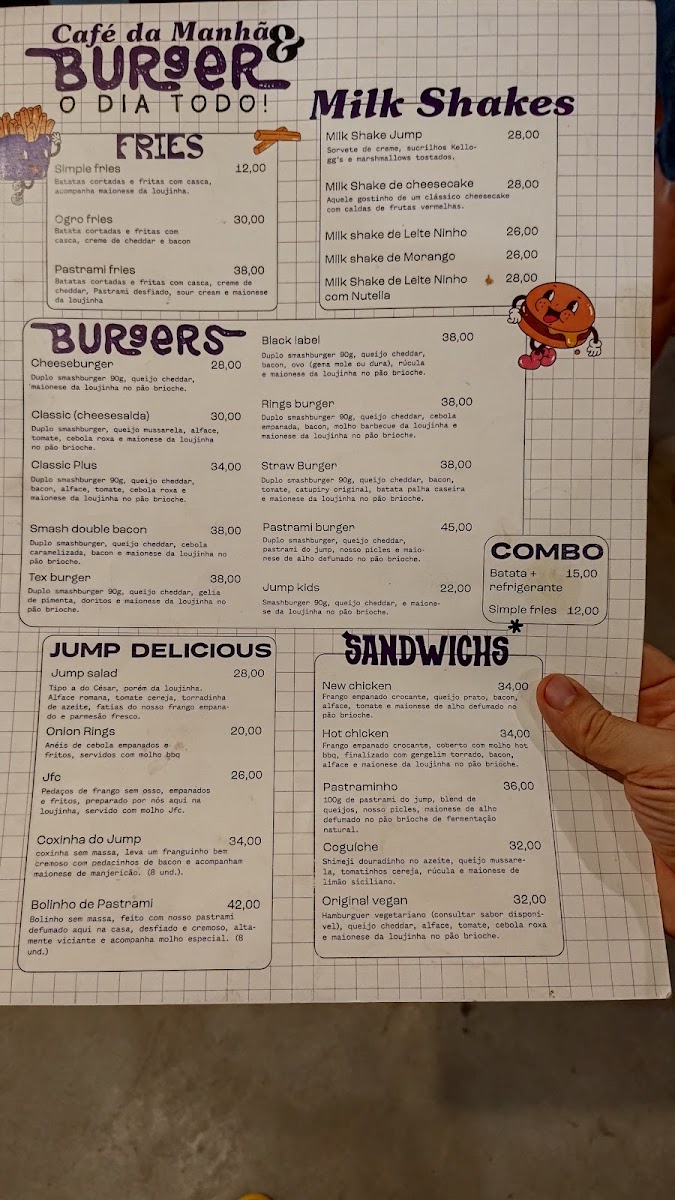 Café da Manhã
&
BURGER
O DIA TODO!
FRIES
Simple fries 12,00
Batatas cortadas e fritas com casca,
acompanha maionese da loujinha.
Ogro fries 30,00
Batata cortadas e fritas com
casca, creme de cheddar e bacon
Pastrami fries 38,00
Batatas cortadas e fritas com casca, creme de
cheddar, Pastrami desfiado, sour cream e maionese
da loujinha
Milk Shakes
Milk Shake Jump 28,00
Sorvete de creme, sucrilhos Kello-
gg's e marshmallows tostados.
Milk Shake de cheesecake 28,00
Aquele gostinho de um clássico cheesecake
com caldas de frutas vermelhas.
Milk shake de Leite Ninho 26,00
Milk shake de Morango 26,00
Milk Shake de Leite Ninho 28,00
com Nutella
BURGERS
Cheeseburger 28,00
Duplo smashburger 90g, queijo cheddar,
maionese da loujinha no pão brioche.
Classic (cheesesalda) 30,00
Duplo smashburger, queijo mussarela, alface,
tomate, cebola roxa e maionese da loujinha
no pão brioche.
Classic Plus 34,00
Duplo smashburger 90g, queijo cheddar,
bacon, alface, tomate, cebola roxa e
maionese da loujinha no pão brioche.
Smash double bacon 38,00
Duplo smashburger, queijo cheddar, cebola
caramelizada, bacon e maionese da loujinha no
pão brioche.
Tex burger 38,00
Duplo smashburger 90g, queijo cheddar, gelia
de pimenta, doritos e maionese da loujinha no
pão brioche.
Black label 38,00
Duplo smashburger 90g, queijo cheddar,
bacon, ovo (gema mole ou dura), rúcula
e maionese da loujinha no pão brioche.
Rings burger 38,00
Duplo smashburger 90g, queijo cheddar, cebola
empanada, bacon, molho barbecue da loujinha e
maionese da loujinha no pão brioche.
Straw Burger 38,00
Duplo smashburger 90g, queijo cheddar, bacon,
tomate, catupiry original, batata palha caseira
e maionese da loujinha no pão brioche.
Pastrami burger 45,00
Duplo smashburger, queijo cheddar,
pastrami do jump, nosso picles e maio-
nese de alho defumado no pão brioche.
Jump kids 22,00
Smashburger 90g, queijo cheddar, e maione-
se da loujinha no pão brioche.
COMBO
Batata + 15,00
refrigerante
Simple fries 12,00
JUMP DELICIOUS
Jump salad 28,00
Tipo a do César, porém da loujinha.
Alface romana, tomate cereja, torradinha
de azeite, fatias do nosso frango empana-
do e parmesão fresco.
Onion Rings 20,00
Anéis de cebola empanados e
fritos, servidos com molho bbq
Jfc 26,00
Pedaços de frango sem osso, empanados
e fritos, preparado por nós aqui na
loujinha, servido com molho Jfc.
Coxinha do Jump 34,00
coxinha sem massa, leva um franguinho bem
cremoso com pedacinhos de bacon e acompanham
maionese de manjericão. (8 und.).
Bolinho de Pastrami 42,00
Bolinho sem massa, feito com nosso pastrami
defumado aqui na casa, desfiado e cremoso, alta-
mente viciante e acompanha molho especial. (8
und.)
SANDWICHS
New chicken 34,00
Frango empanado crocante, queijo prato, bacon,
alface, tomate e maionese de alho defumado no
pão brioche.
Hot chicken 34,00
Frango empanado crocante, coberto com molho hot
bbq, finalizado com gergelim torrado, bacon,
alface e maionese da loujinha no pão brioche.
Pastraminho 36,00
100g de pastrami do jump, blend de
queijos, nosso picles, maionese de alho
defumado no pão brioche de fermentação
natural.
Coguiche 32,00
Shimeji douradinho no azeite, queijo mussare-
la, tomatinhos cereja, rúcula e maionese de
limão siciliano.
Original vegan 32,00
Hamburguer vegetariano (consultar sabor disponí-
vel), queijo cheddar, alface, tomate, cebola roxa
e maionese da loujinha no pão brioche.